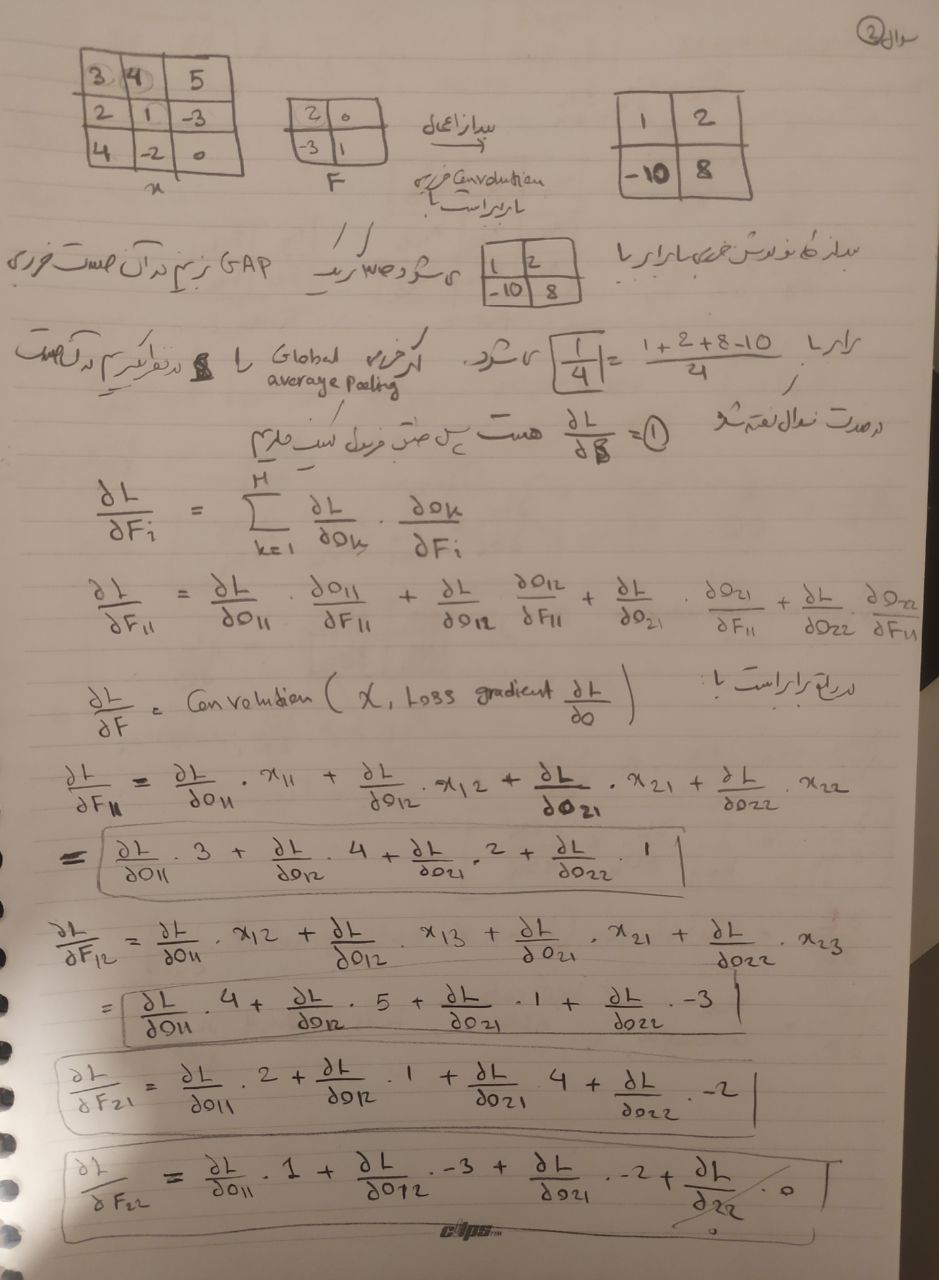 سوال ②
3 4 5
2 1 -3
4 -2 0
x
2 0
-3 1
F
بعد از اعمال
→
Convolution
برابر است با
1 2
-10 8
1 2
-10 8
می شود GAP بزنیم در آن صورت خروجی
برابر با (1+2+8-10)/4 = 1/4 می شود. اگر خروجی Global average pooling را در نظر بگیریم در آن صورت
در صورت سوال گفته شده ∂L/∂S = ① هست پس طبق فرمول داریم
∂L/∂Fi = Σ_{k=1}^{M} ∂L/∂Ok . ∂Ok/∂Fi
∂L/∂F11 = ∂L/∂O11 . ∂O11/∂F11 + ∂L/∂O12 . ∂O12/∂F11 + ∂L/∂O21 . ∂O21/∂F11 + ∂L/∂O22 . ∂O22/∂F11
در واقع برابر است با:
∂L/∂F = Convolution (X, Loss gradient ∂L/∂O)
∂L/∂F11 = ∂L/∂O11 . x11 + ∂L/∂O12 . x12 + ∂L/∂O21 . x21 + ∂L/∂O22 . x22
= ∂L/∂O11 . 3 + ∂L/∂O12 . 4 + ∂L/∂O21 . 2 + ∂L/∂O22 . 1
∂L/∂F12 = ∂L/∂O11 . x12 + ∂L/∂O12 . x13 + ∂L/∂O21 . x21 + ∂L/∂O22 . x23
= ∂L/∂O11 . 4 + ∂L/∂O12 . 5 + ∂L/∂O21 . 1 + ∂L/∂O22 . -3
∂L/∂F21 = ∂L/∂O11 . 2 + ∂L/∂O12 . 1 + ∂L/∂O21 . 4 + ∂L/∂O22 . -2
∂L/∂F22 = ∂L/∂O11 . 1 + ∂L/∂O12 . -3 + ∂L/∂O21 . -2 + ∂L/∂22 . 0
0
clips